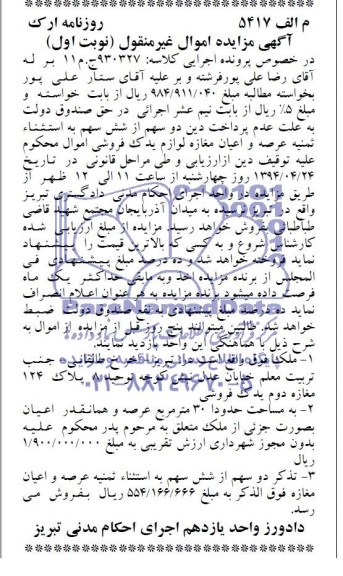 م الف ۵۴۱۷ روزنامه ارک
آگهی مزایده اموال غیرمنقول (نوبت اول)
در خصوص پرونده اجرایی کلاسه: ۹۳۰۳۲۷ج.م۱۱ بر له
آقای رضا علی پورفرشته و بر علیه آقای ستار علی پور
بخواسته مطالبه مبلغ ۹۸۴/۹۱۱/۰۴۰ ریال از بابت خواسته و
مبلغ ۵٪ ریال از بابت نیم عشر اجرائی در حق صندوق دولت
به علت عدم پرداخت دین دو سهم از شش سهم به استثناء
ثمنیه عرصه و اعیان مغازه لوازم یدک فروشی اموال محکوم
علیه توقیف دین ازارزیابی و طی مراحل قانونی در تاریخ
۱۳۹۴/۰۴/۲۴ روز چهارشنبه از ساعت ۱۱ الی ۱۲ ظهر از
طریق مزایده در واحد اجرای احکام مدنی دادگستری تبریز
واقع در تبریز نرسیده به میدان آذربایجان مجتمع شهید قاضی
طباطبائی بفروش خواهد رسید. مزایده از مبلغ ارزیابی شده
کارشناس شروع و به کسی که بالاترین قیمت را پیشنهاد
نماید فروخته خواهد شد و ده درصد مبلغ پیشنهادی فی
المجلس از برنده مزایده اخذ و به مابقی حداکثر یک ماه
فرصت داده میشود برنده مزایده به هر عنوان اعلام انصراف
نماید ده درصد مبلغ پیشنهادی به نفع صندوق دولت ضبط
خواهد شد. طالبین میتوانند پنج روز قبل از مزایده از اموال به
شرح ذیل با هماهنگی این واحد بازدید نمایند.
۱- ملک فوق واقع است در تبریز - آخرخ طالقانی - جنب
تربیت معلم خیابان عارف نبش کوچه توحید۷ پلاک ۱۲۴
مغازه دوم یدک فروشی
۲- به مساحت حدودا ۳۰ مترمربع عرصه و همانقدر اعیان
بصورت جزئی از ملک متعلق به مرحوم پدر محکوم علیه
بدون مجوز شهرداری ارزش تقریبی به مبلغ ۱/۹۰۰/۰۰۰/۰۰۰
ریال
۳- تذکر دو سهم از شش سهم به استثناء ثمنیه عرصه و اعیان
مغازه فوق الذکر به مبلغ ۵۵۴/۱۶۶/۶۶۶ ریال بفروش می
رسد.
دادورز واحد یازدهم اجرای احکام مدنی تبریز